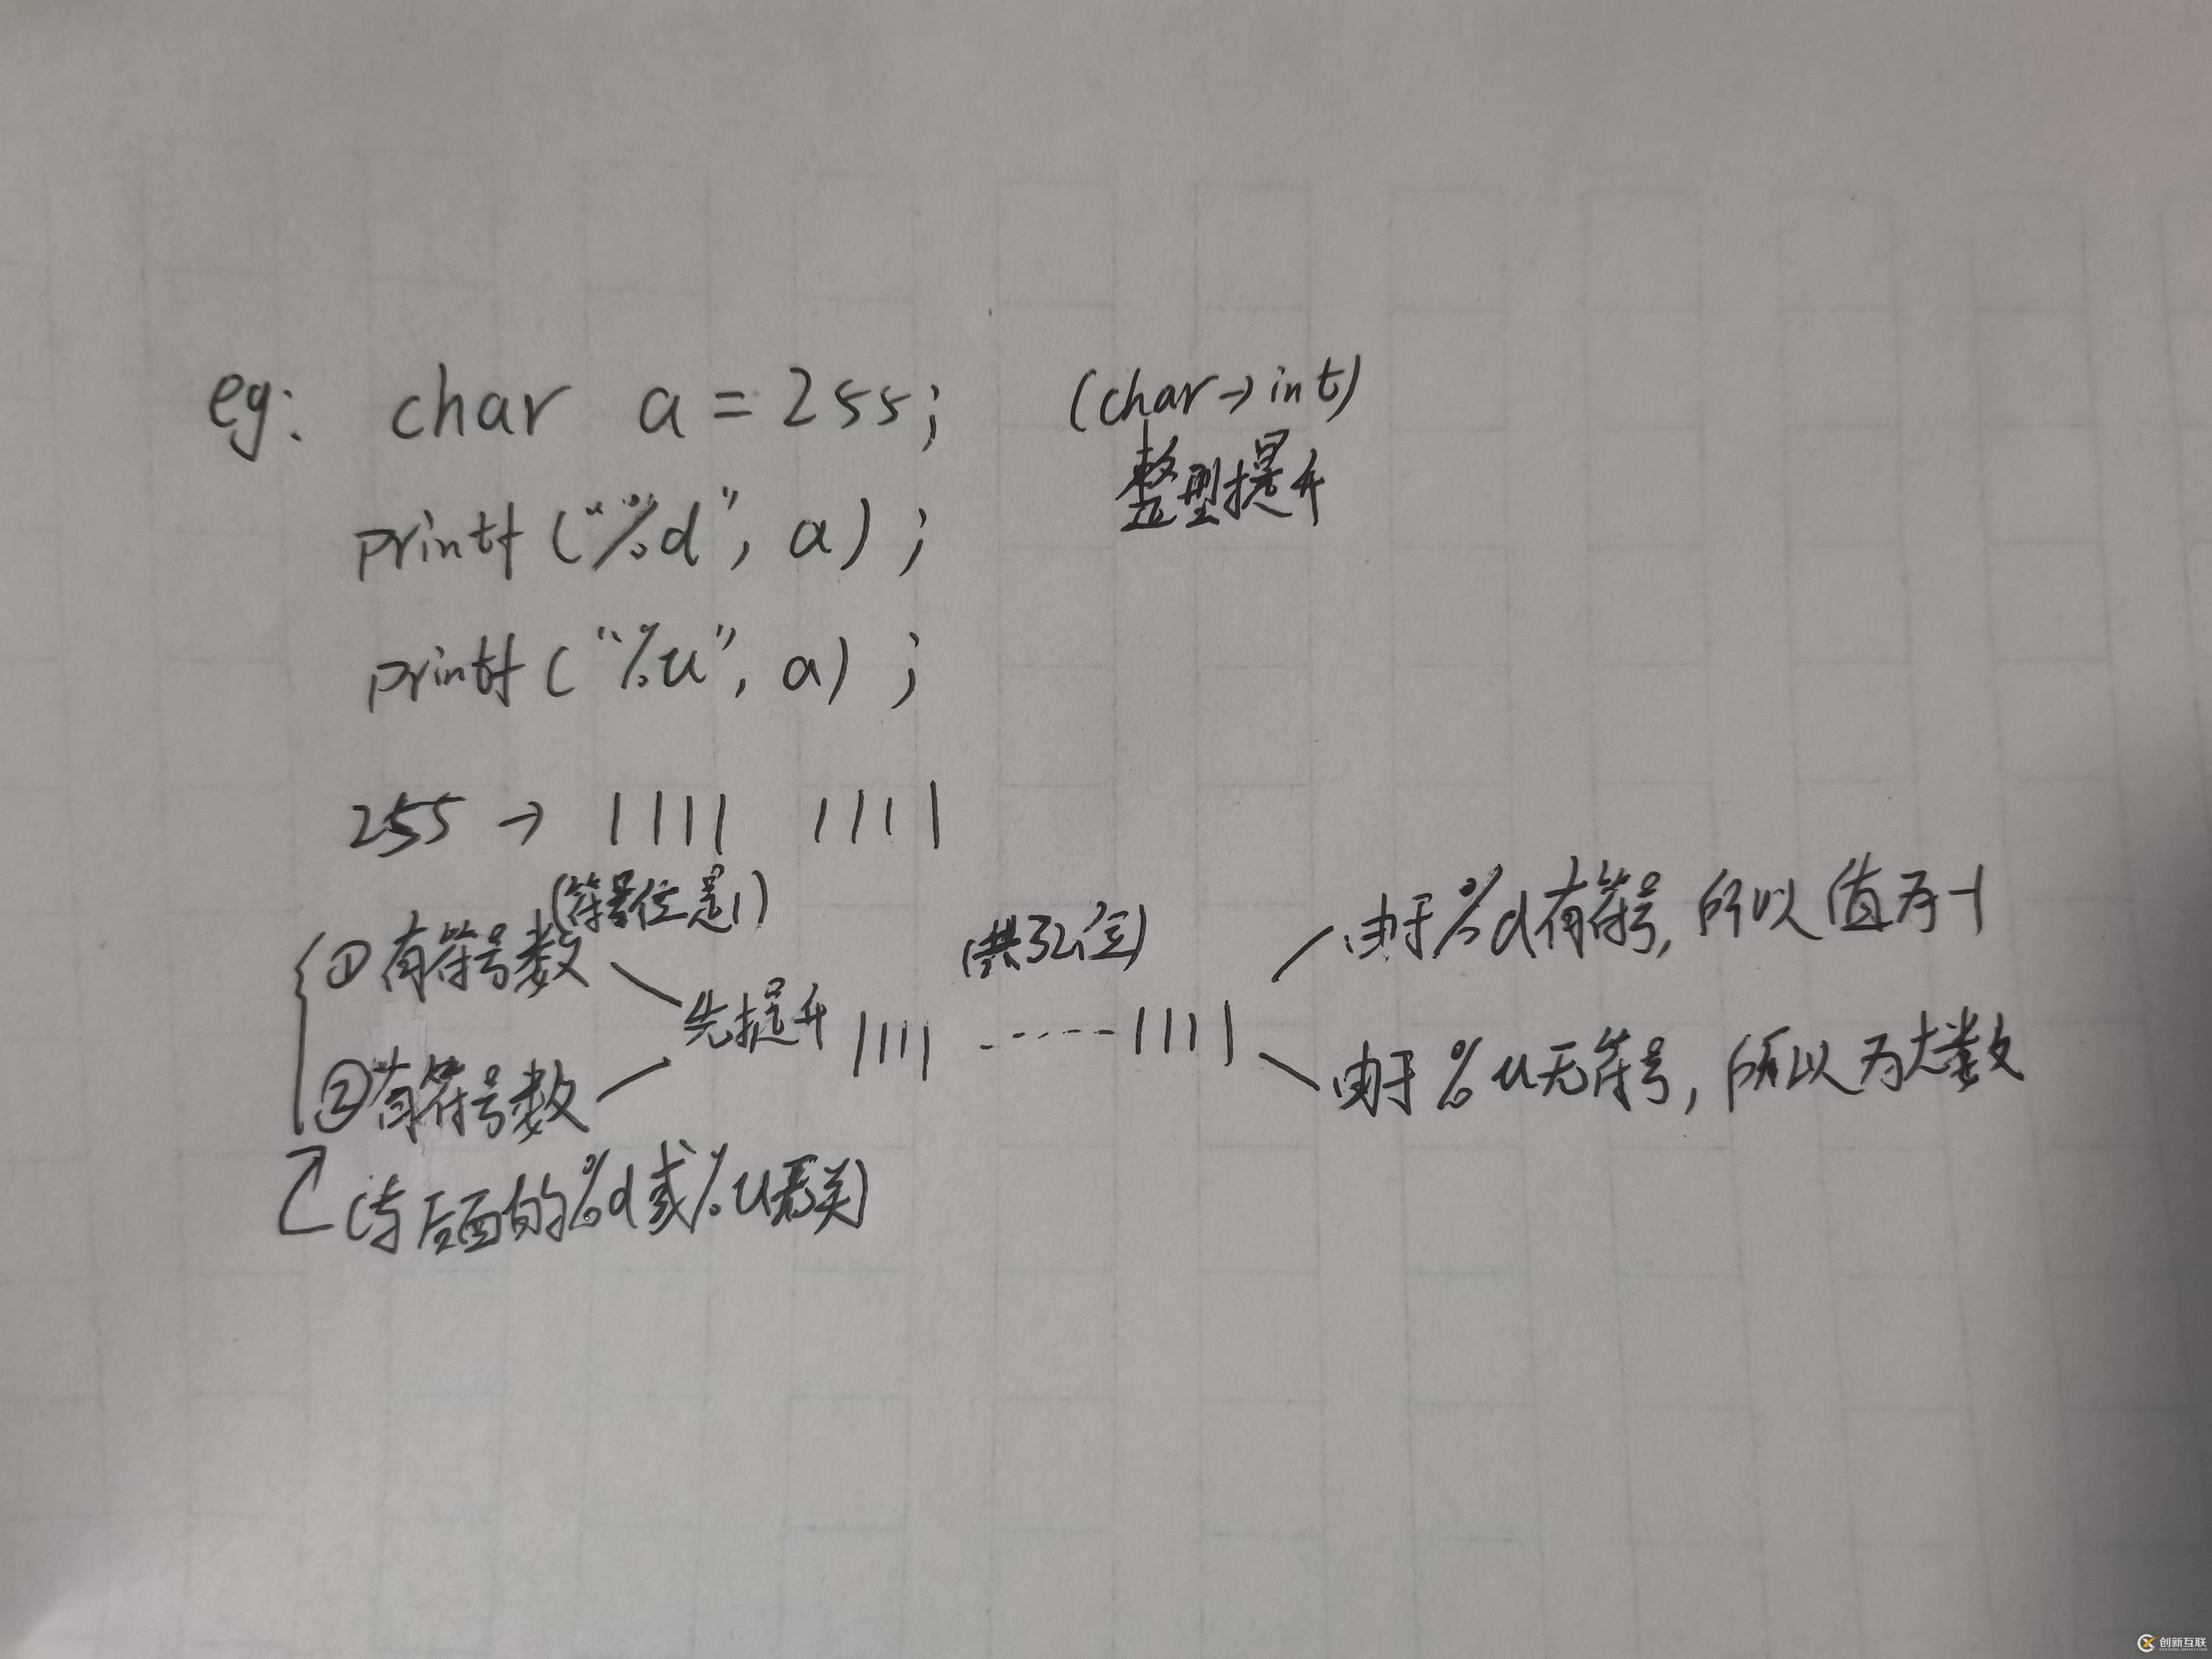 eg: char a = 255; (char→int)
整型提升
printf ("%d", a) ;
printf ("%u", a) ;
255 → 1111 1111
(符号位是1)
①有符号数
先提升 1111 ······1111
(共32位)
由于%d有符号,所以值为-1
②有符号数
由于%u无符号,所以为大数
(与后面的%d或%u无关)
创新互联